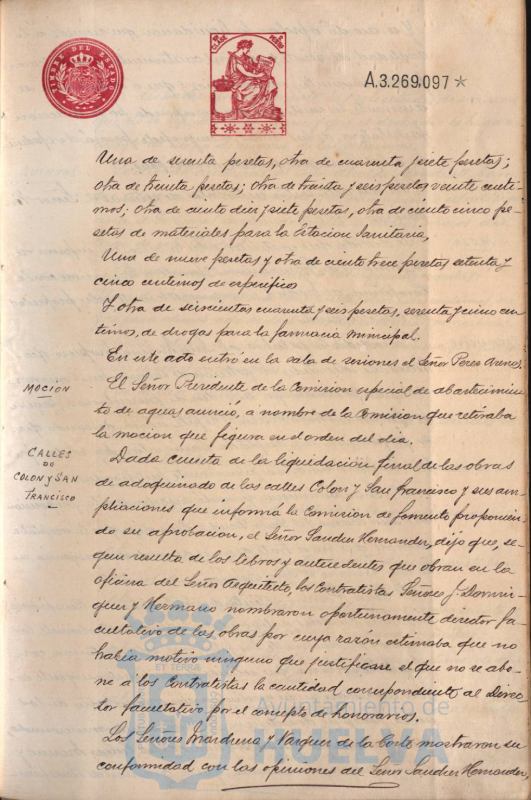 TIMBRE DEL ESTADO
A.3.269.097*
Una de setenta pesetas, otra de cuarenta y siete pesetas;
otra de treinta pesetas; otra de treinta y seis pesetas veinte centi-
mos; otra de ciento diez y siete pesetas, otra de ciento cinco pe-
setas de materiales para la Estacion Sanitaria,
Una de nueve pesetas y otra de ciento trece pesetas setenta y
cinco centimos de especificos
Y otra de seiscientas cuarenta y seis pesetas, setenta y cinco cen-
timos, de drogas para la farmacia municipal.
En este acto entró en la sala de sesiones el Señor Perez
MOCIÓN
El Señor Presidente de la Comision especial de abastecimien-
to de aguas anunció, a nombre de la Comision que retiraba
la mocion que figura en el orden del dia.
CALLES
DE
COLON Y SAN
FRANCISCO
Dada cuenta de la liquidación final de las obras
de adoquinado de las calles Colon y San Francisco y sus am-
pliaciones que informá la Comision de fomento proponien-
do su aprobacion, el Señor Sanchez Hernandez, dijo que, se-
gun resulta de los libros y antecedentes que obran en la
oficina del Señor Arquitecto, los Contratistas Señores J. Domin-
guez y Hermano nombraron oportunamente director fa-
cultativo de las obras por cuya razón estimaba que no
habia motivo ninguno que justificase el que no se abo-
ne a los Contratistas la cantidad correspondiente al Direc-
tor facultativo por el concepto de honorarios.
Los Señores y Vazquez de la Corte mostraron su
conformidad con las opiniones del Señor Sanchez Hernandez,
Ayuntamiento de
HUELVA